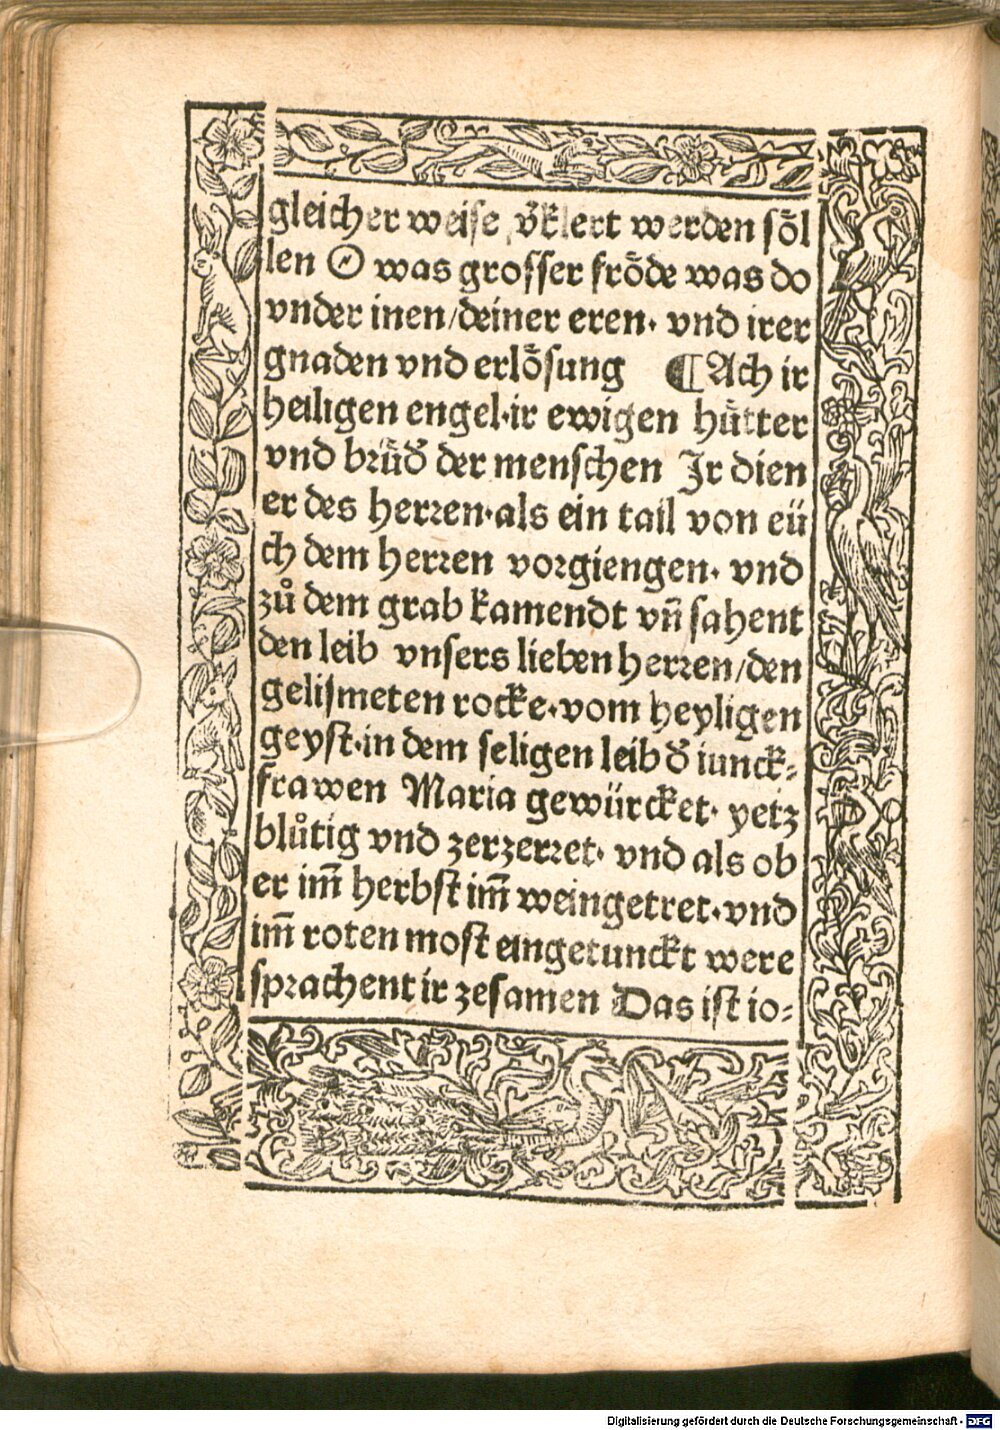 gleicher weise v̄klert werden soͤl
len O was grosser froͤde was do
vnder inen/deiner eren· vnd irer
gnaden vnd erloͤsung ¶Ach ir
heiligen engel·ir ewigen huͤtter
vnd bruͤd̕ der menschen Jr dien
er des herꝛen·als ein tail von eü
ch dem herꝛen voꝛgiengen· vnd
zů dem grab kamendt vñ sahent
den leib vnsers lieben herꝛen/den
gelismeten rocke·vom heyligen
geyst·in dem seligen leib d̕ iunck⸗
frawen Maria gewürcket· yetz
blůtig vnd zerzerꝛet· vnd als ob
er im̄ herbst im̄ weingetret·vnd
im̄ roten most eingetunckt were
spꝛachent ir zesamen Das ist io⸗
Digitalisierung gefördert durch die Deutsche Forschungsgemeinschaft - DFG